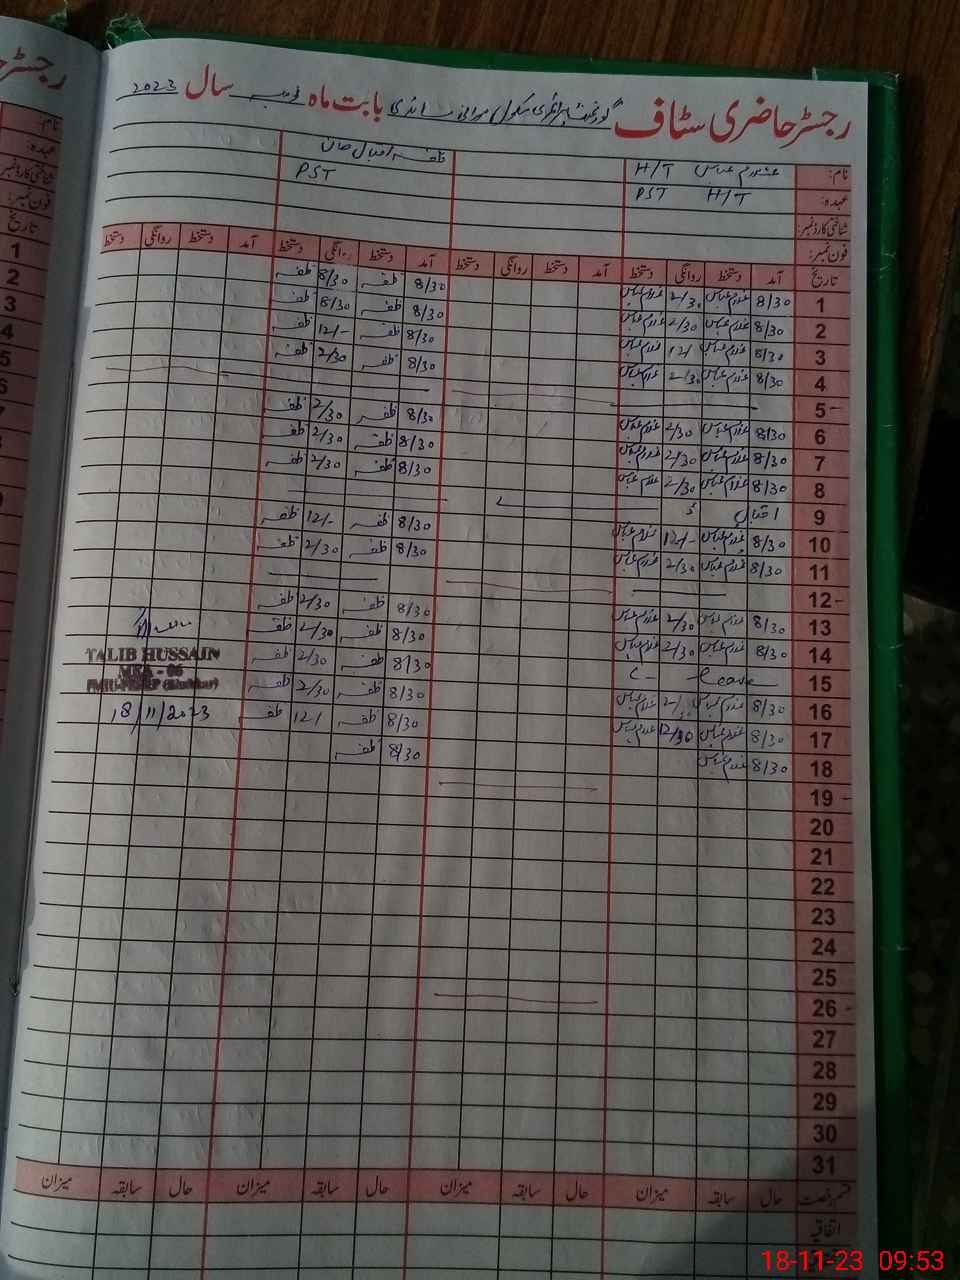 رجسٹر حاضری سٹاف گورنمنٹ پرائمری سکول بابت ماہ نومبر سال 2023
نام: غلام عباس H/T ظفر اقبال خان
عہدہ: H/T PST PST
شناختی کارڈ نمبر:
فون نمبر:
تاریخ آمد دستخط روانگی دستخط آمد دستخط روانگی دستخط آمد دستخط روانگی دستخط آمد دستخط روانگی دستخط
1 8/30 غلام عباس 2/30 غلام عباس 8/30 ظفر 8/30 ظفر
2 8/30 غلام عباس 2/30 غلام عباس 8/30 ظفر 8/30 ظفر
3 8/30 غلام عباس 12/ غلام عباس 8/30 ظفر 12/- ظفر
4 8/30 غلام عباس 2/30 غلام عباس 8/30 ظفر 2/30 ظفر
5 -
6 8/30 غلام عباس 2/30 غلام عباس 8/30 ظفر 2/30 ظفر
7 8/30 غلام عباس 2/30 غلام عباس 8/30 ظفر 2/30 ظفر
8 8/30 غلام عباس 2/30 غلام عباس 8/30 ظفر 2/30 ظفر
9 اقبال ڈے
10 8/30 غلام عباس 12/- غلام عباس 8/30 ظفر 12/- ظفر
11 8/30 غلام عباس 2/30 غلام عباس 8/30 ظفر 2/30 ظفر
12 -
13 8/30 غلام عباس 2/30 غلام عباس 8/30 ظفر 2/30 ظفر
14 8/30 غلام عباس 2/30 غلام عباس 8/30 ظفر 2/30 ظفر
15 C- Leave 8/30 ظفر 2/30 ظفر
16 8/30 غلام عباس غلام عباس 8/30 ظفر 2/30 ظفر
17 8/30 غلام عباس 12/30 غلام عباس 8/30 ظفر 12/ ظفر
18 8/30 غلام عباس 8/30 ظفر
TALIB HUSSAIN
MEA - 06
18/11/2023
19 -
20
21
22
23
24
25
26 -
27
28
29
30
31
قسم رخصت حال سابقہ میزان حال سابقہ میزان حال سابقہ میزان حال سابقہ میزان
اتفاقیہ
18-11-23 09:53
رجسٹر
نام:
عہدہ:
شناختی کارڈ نمبر
فون نمبر:
تاریخ
1
2
3
4
5
6